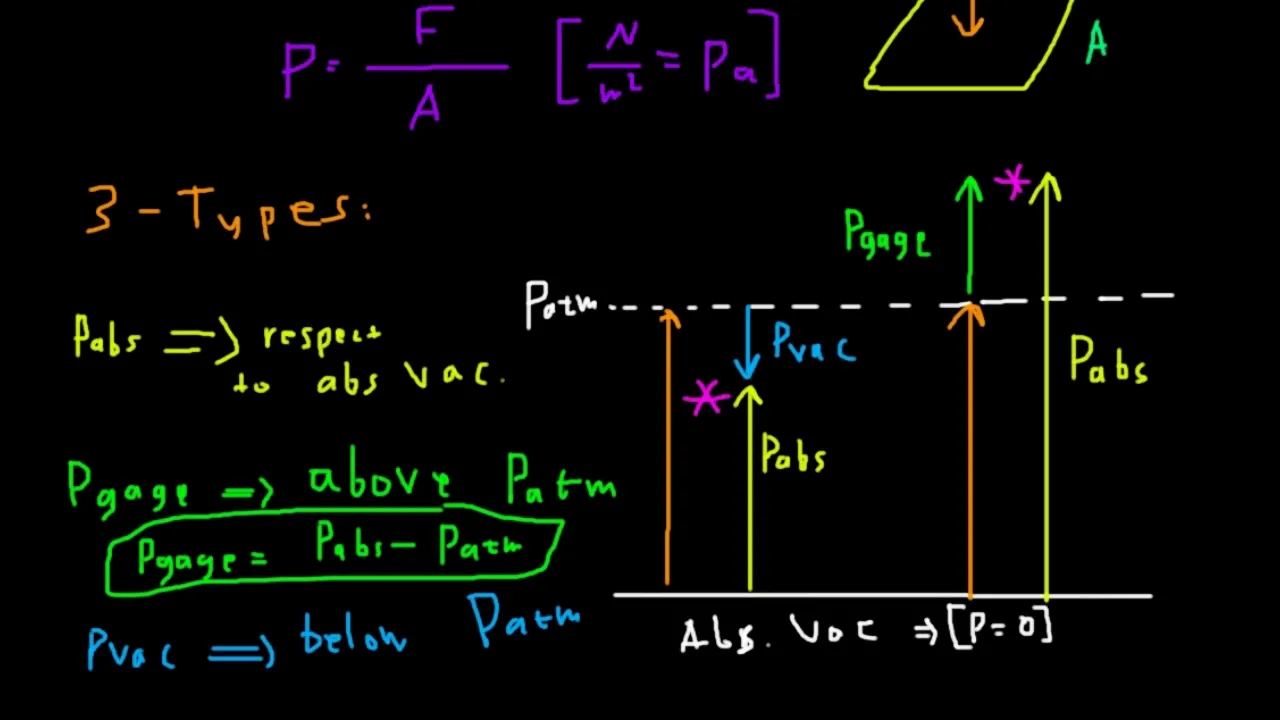 P = F / A [N / m² = Pa]
A
3 - Types:
Pabs => respect
to abs vac.
Pgage => above Patm
Pgage = Pabs - Patm
Pvac => below Patm
Pgage
Patm
Pvac
Pabs
Pabs
Abs. Vac => [P = 0]